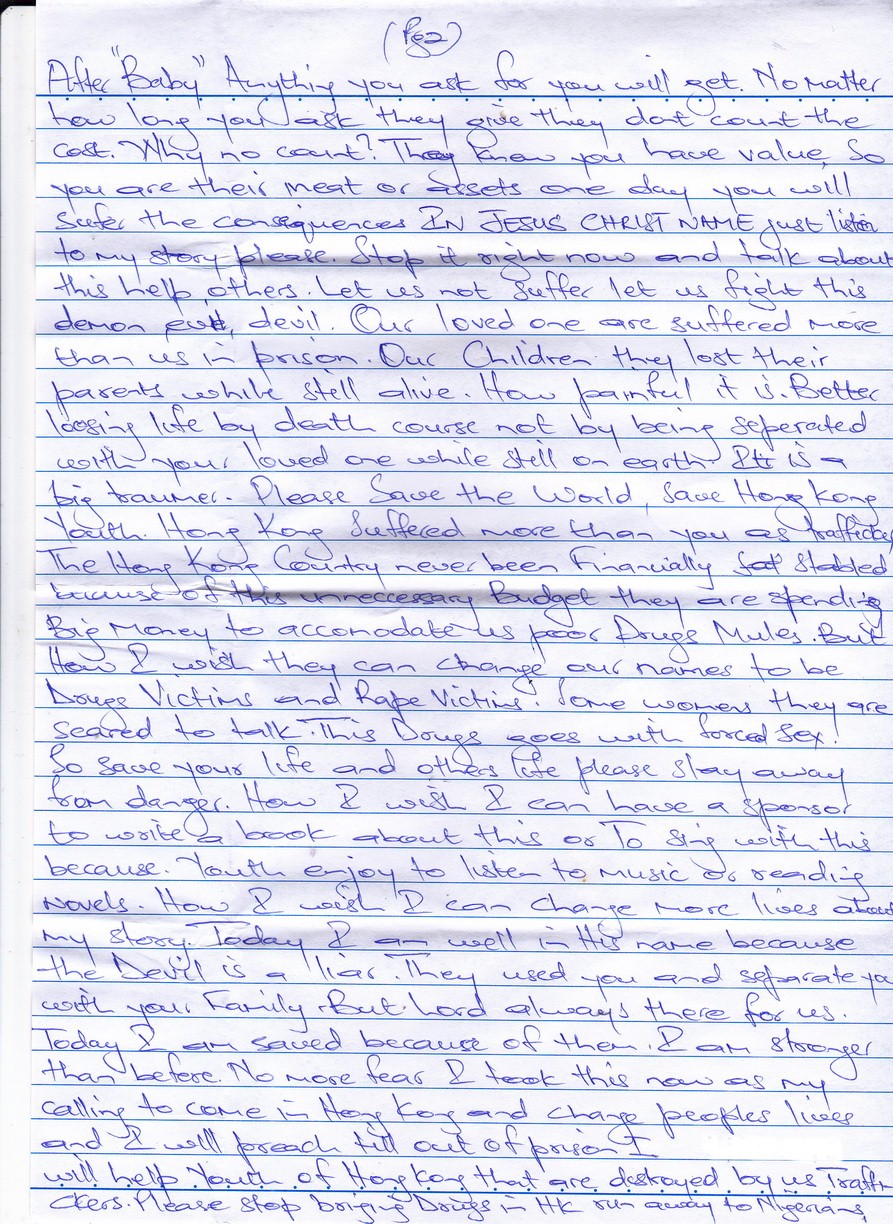 (Pg2)
After "Baby" Anything you ask for you will get. No matter
how long you ask they give they dont count the
cost. Why no count? They know you have value, So
you are their meat or assets one day you will
suffer the consequences IN JESUS CHRIST NAME just listen
to my story please. Stop it right now and talk about
this help others. Let us not suffer let us fight this
demon devil. Our loved one are suffered more
than us in prison. Our Children they lost their
parents while still alive. How painful it is. Better
loosing life by death course not by being seperated
with your loved one while still on earth. It is a
big traumer. Please Save the World, Save Hong Kong
Youth. Hong Kong Suffered more than you as trafficker
The Hong Kong Country never been Financially Stabled
because of this unneccessary Budget they are spending
Big Money to accomodate us poor Drugs Mules. But
How I wish they can change our names to be
Drugs Victims and Rape Victims. Some womens they are
scared to talk. This Drugs goes with forced sex!
So save your life and others life please stay away
from danger. How I wish I can have a sponsor
to write a book about this or To sing with this
because. Youth enjoy to listen to music or reading
Novels. How I wish I can change more lives about
my story. Today I am well in His name because
the Devil is a liar. They used you and separate you
with your Family. But Lord always there for us.
Today I am saved because of them. I am stronger
than before. No more fear I took this now as my
calling to come in Hong Kong and change peoples lives
and I will preach till out of prison I
will help Youth of Hong Kong that are destroyed by us Traffi
ckers. Please stop bringing Drugs in HK run away to Nigerians,